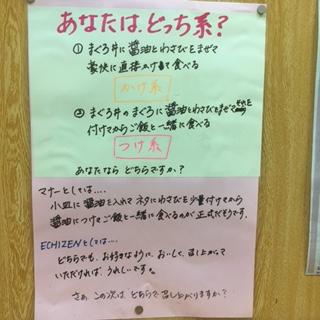 あなたは、どっち系？
① まぐろ丼に醤油とわさびをまぜて
豪快に直接かけて食べる
かけ系
② まぐろ丼のまぐろに醤油とわさびをまぜて
付けてからご飯と一緒に食べる
つけ系
あなたなら どちらですか？
マナーとしては‥‥
小皿に醤油を入れてネタにわさびを少量付けてから
醤油につけてご飯と一緒に食べるのが正式だそうです。
ECHIZENとしては‥‥
どちらでも、お好きなように、おいしく、召し上がって
いただければ、うれしいです。
さぁ、この次は、どちらで召し上がりますか？